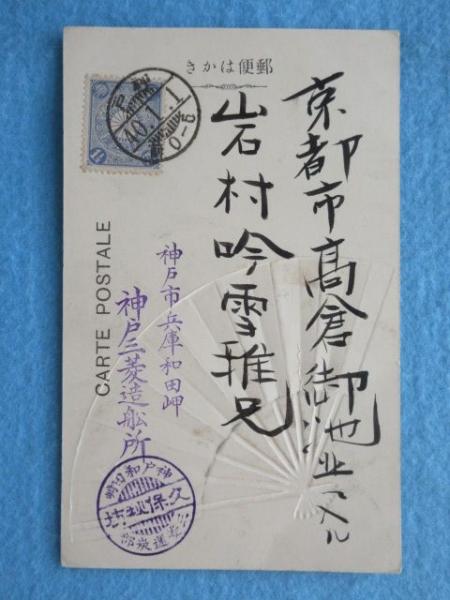 郵便はかき
京都市高倉御池
岩村吟雪雅兄
神戸
40.1.1
0-5
CARTE POSTALE
神戸市兵庫和田岬
神戸三菱造船所
神戸和田
久保